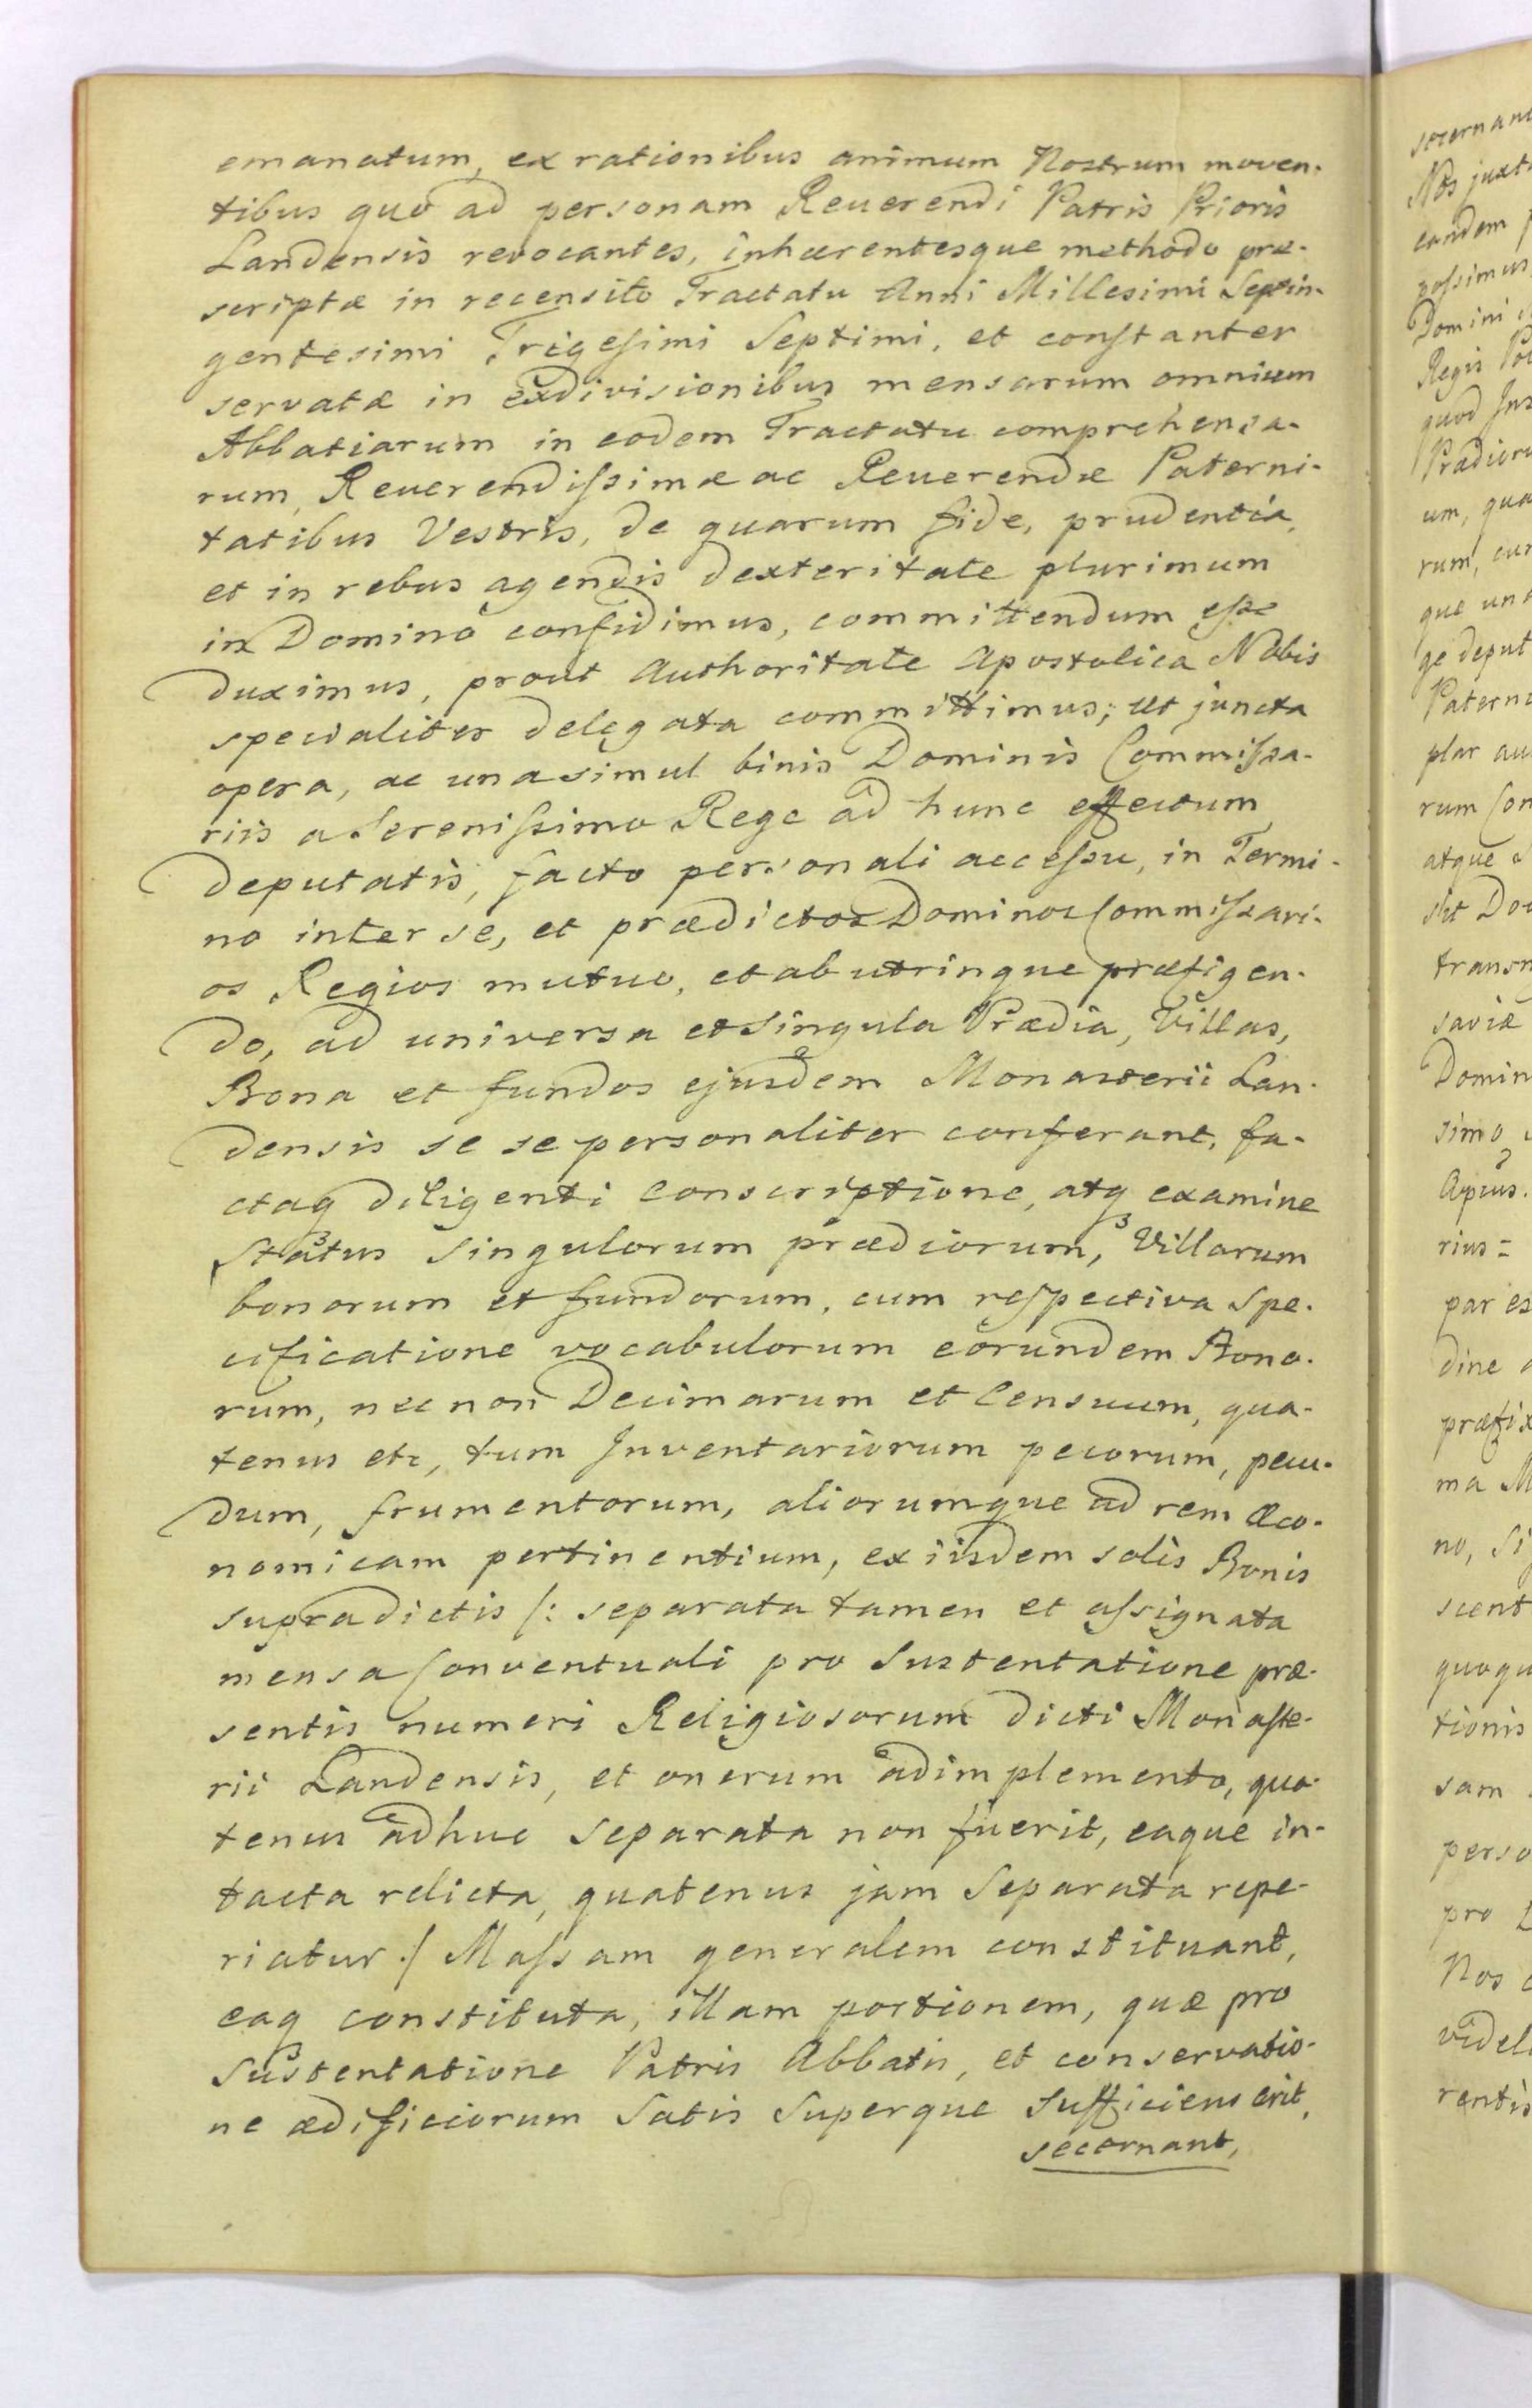 emanatum, ex rationibus animum Nostrum moven-
tibus quo ad personam Reuerendi Patris Prioris
Landensis revocantes, inhærentesque methodo præ-
scriptæ in recensito Tractatu Anni Millesimi Septin-
gentesimi Trigesimi Septimi, et constanter
servatæ in exdivisionibus mensarum omnium
Abbatiarum in eodem Tractatu comprehensa-
rum, Reuerendissimæ ac Reuerendæ Paterni-
tatibus Vestris, de quarum fide, prudentia,
et in rebus agendis dexteritate plurimum
in Domino confidimus, committendum esse
duximus, prout Authoritate Apostolica Nobis
specialiter delegata committimus; ut juncta
opera, ac una simul binis Dominis Commissa-
riis a Serenissimo Rege ad hunc effectum
deputatis, facto personali accessu, in Termi-
no inter se, et prædictos Dominos Commissari-
os Regios mutuo, et ab utrinque præfigen-
do, ad universa et singula Prædia, Villas,
Bona et fundos ejusdem Monasterii Lan-
densis se se personaliter conferant, fa-
ctaq3 diligenti conscriptione, atq3 examine
status singulorum prædiorum, Villarum
bonorum et fundorum, cum respectiva spe-
cificatione vocabulorum eorundem Bono-
rum, nec non Decimarum et Censuum, qua-
tenus etc, tum Inventariorum pecorum, pecu-
dum, frumentorum, aliorumque ad rem æco-
nomicam pertinentium, ex iisdem solis Bonis
supradictis /: separata tamen et assignata
mensa Conventuali pro Sustentatione præ-
sentis numeri Religiosorum dicti Monaste-
rii Landensis, et onerum adimplemento, qua-
tenus adhuc separata non fuerit, eaque in-
tacta relicta, quatenus jam Separata repe-
riatur ./ Massam generalem constituant,
eaq3 constituta, illam portionem, quæ pro
Sustentatione Patris Abbatis, et conservatio-
ne ædificiorum Satis Superque sufficiens erit,
secernant,
Nos juxta
eandem
possimus
Domini
quod
um, qua
rum,
ge deput
plar
atque
sit
saviæ
Domin
simo
rius =
par
dine
ma M
no,
quoqu
tionis
sam
perso
pro
Nos
videl
rentis